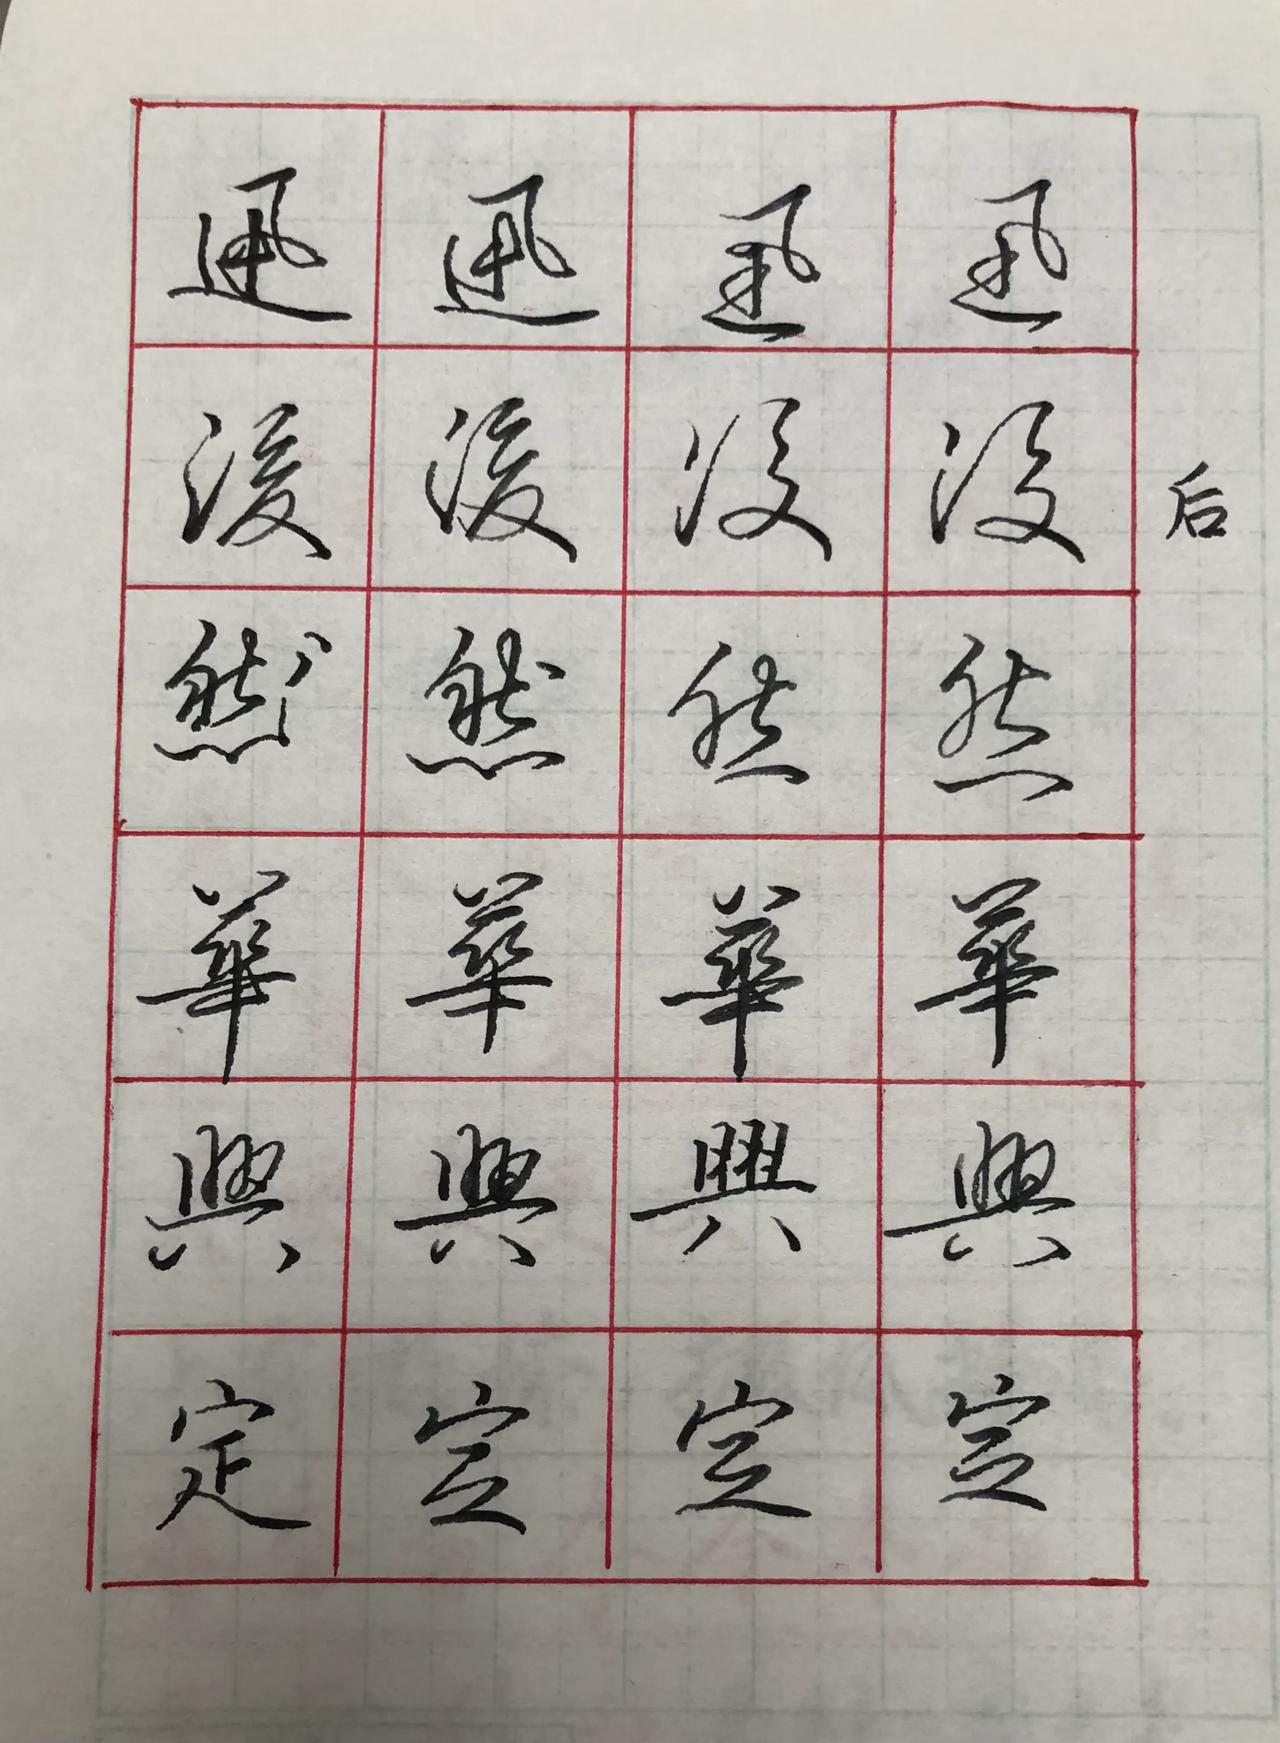 迅 迅 迅 迅
後 後 後 後 后
然 然 然 然
華 華 華 華
興 興 興 興
定 定 定 定